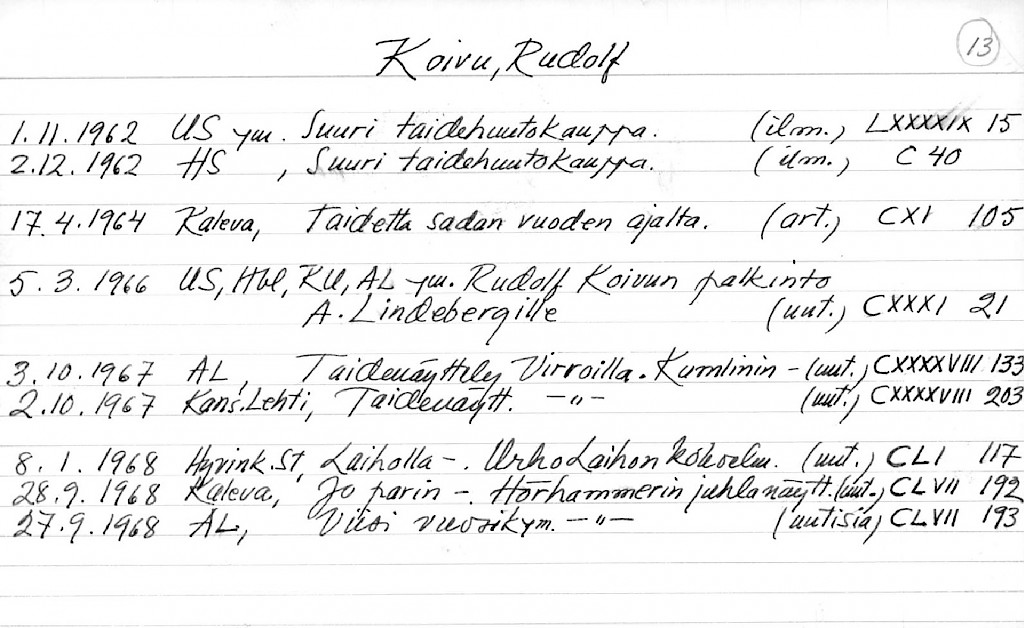 13
Koivu, Rudolf
1.11.1962 US ym. Suuri taidehuutokauppa. (ilm.) LXXXXIX 15
2.12.1962 HS , Suuri taidehuutokauppa. (ilm.) C 40
17.4.1964 Kaleva, Taidetta sadan vuoden ajalta. (art.) CXI 105
5.3.1966 US, Hbl, KU, AL ym. Rudolf Koivun palkinto
A. Lindebergille (uut.) CXXXI 21
3.10.1967 AL, Taidenäyttely Virroilla. Kumlinin - (uut.) CXXXXVIII 133
2.10.1967 Kans.Lehti, Taidenäytt. -"- (uut.) CXXXXVIII 203
8.1.1968 Hyvink.St, Laiholla -. Urho Laihon kokoelm. (uut.) CLI 117
28.9.1968 Kaleva, Jo parin -. Hörhammerin juhlanäytt. (uut.) CLVII 192
27.9.1968 AL, Viisi vuosikym. -"- (uutisia) CLVII 193